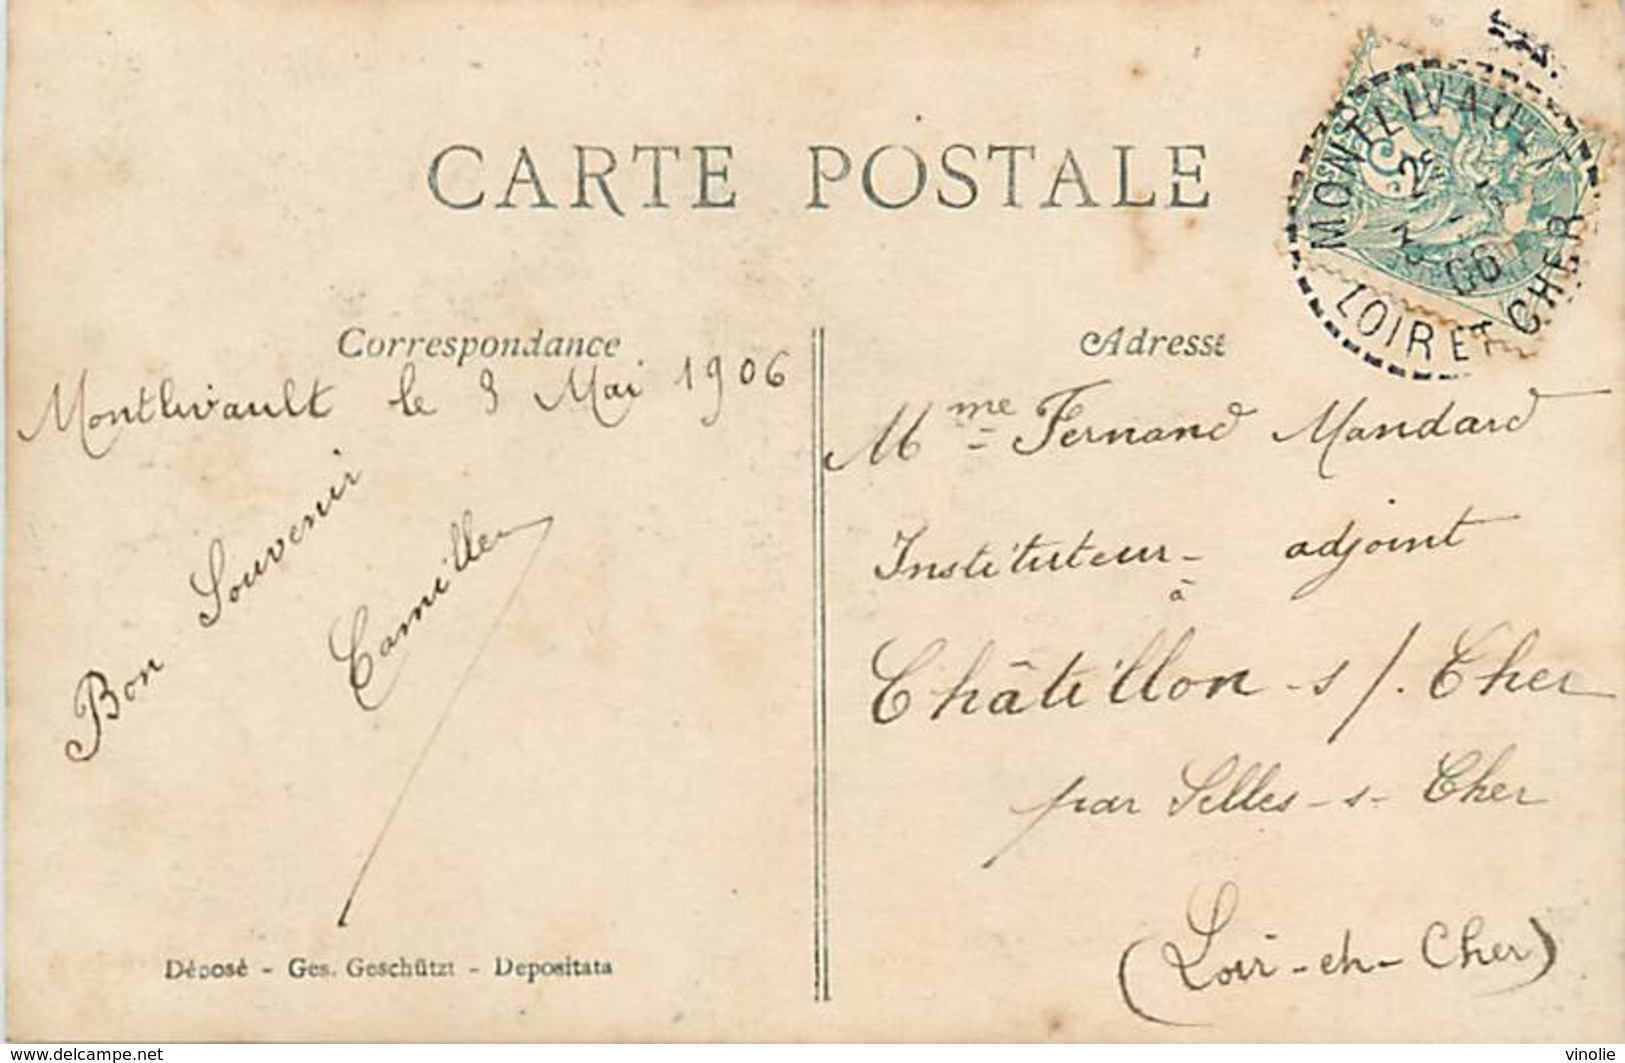 CARTE POSTALE
MONTLIVAULT
2E
3 - 5
06
LOIR ET CHER
Correspondance
Montlivault le 3 Mai 1906
Bon Souvenir
Camille
Déposé - Ges. Geschützt - Depositata
Adresse
Mme Fernand Mandard
Instituteur - adjoint
à
Châtillon - s/. Cher
par Selles - s - Cher
(Loir - et - Cher)
https://www.delcampe.net
vinolie